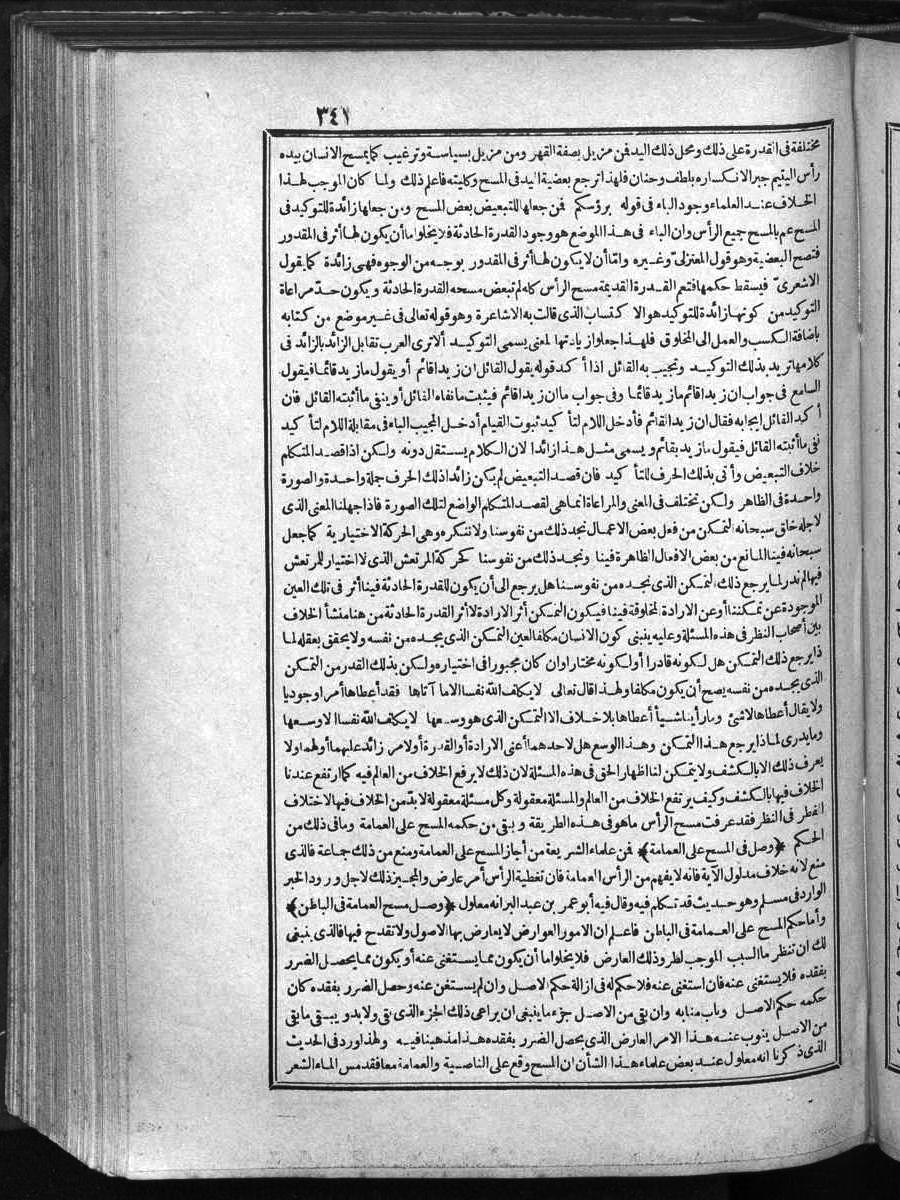 ٣٤١
مختلفة فى القدرة على ذلك ومحل ذلك اليد فمن مزيل بصفة القهر ومن مزيل بسياسة وترغيب كما يمسح الانسان بيده
رأس اليتيم جبر الانكساره بلطف وحنان فلهذا ترجع بعضية اليد فى المسح وكليته فاعلم ذلك ولما كان الموجب لهذا
الخلاف عند العلماء وجود الباء فى قوله برؤسكم فمن جعلها للتبعيض بعض المسح ومن جعلها زائدة للتوكيد فى
المسح عم بالمسح جميع الرأس وان الباء فى هذا الموضع هو وجود القدرة الحادثة فلا يخلو اما أن يكون لها أثر فى المقدور
فتصح البعضية وهو قول المعتزلىّ وغيره واما أن لا يكون لها أثر فى المقدور بوجه من الوجوه فهى زائدة كما يقول
الاشعرىّ فيسقط حكمها فتعم القدرة القديمة مسح الرأس كله لم تبعض مسحه القدرة الحادثة ويكون حدّ مراعاة
التوكيد من كونها زائدة للتوكيد هو الاكتساب الذى قالت به الاشاعرة وهو قوله تعالى فى غير موضع من كتابه
باضافة الكسب والعمل الى المخلوق فلهذا جعلوا زيادتها لمعنى يسمى التوكيد ألا ترى العرب تقابل الزائد بالزائد فى
كلامها تريد بذلك التوكيد وتجيب به القائل اذا أكد قوله يقول القائل ان زيدا قائم أو يقول ما زيد قائما فيقول
السامع فى جواب ان زيدا قائم ما زيد قائما وفى جواب ما ان زيدا قائم فيثبت ما نفاه القائل أو ينفى ما أثبته القائل فان
أكد القائل ايجابه فقال ان زيدا لقائم فأدخل اللام لتأكيد ثبوت القيام أدخل المجيب الباء فى مقابلة اللام لتأكيد
نفى ما أثبته القائل فيقول ما زيد بقائم ويسمى مثل هذا زائدا لان الكلام يستقل دونه ولكن اذا قصد المتكلم
خلاف التبعيض وأتى بذلك الحرف للتأكيد فان قصد التبعيض لم يكن زائدا ذلك الحرف جملة واحدة والصورة
واحدة فى الظاهر ولكن تختلف فى المعنى والمراعاة انما هى لقصد المتكلم الواضع لتلك الصورة فاذا جهلنا المعنى الذى
لاجله خلق سبحانه التمكن من فعل بعض الاعمال نجد ذلك من نفوسنا ولا ننكره وهى الحركة الاختيارية كما جعل
سبحانه فينا المانع من بعض الافعال الظاهرة فينا ونجد ذلك من نفوسنا كحركة المرتعش الذى لا اختيار للمرتعش
فيها لم ندر لما يرجع ذلك التمكن الذى نجده من نفوسنا هل يرجع الى أن يكون للقدرة الحادثة فينا أثر فى تلك العين
الموجودة عن تمكننا أو عن الارادة المخلوقة فينا فيكون التمكن أثر الارادة لا أثر القدرة الحادثة من هنا منشأ الخلاف
بين أصحاب النظر فى هذه المسئلة وعليه ينبنى كون الانسان مكلفا لعين التمكن الذى يجده من نفسه ولا يحقق بعقله لما
ذا يرجع ذلك التمكن هل لكونه قادرا أو لكونه مختارا وان كان مجبورا فى اختياره ولكن بذلك القدر من التمكن
الذى يجده من نفسه يصح أن يكون مكلفا ولهذا قال تعالى لا يكلف الله نفسا الا ما آتاها فقد أعطاها أمرا وجوديا
ولا يقال أعطاها لا شئ وما رأينا شيأ أعطاها بلا خلاف الا التمكن الذى هو وسعها لا يكلف الله نفسا الا وسعها
وما يدرى لماذا يرجع هذا التمكن وهذا الوسع هل لاحدهما أعنى الارادة أو القدرة أو لامر زائد عليهما أو لهما ولا
يعرف ذلك الا بالكشف ولا يتمكن لنا اظهار الحق فى هذه المسئلة لان ذلك لا يرفع الخلاف من العالم فيه كما ارتفع عندنا
الخلاف فيها بالكشف وكيف يرتفع الخلاف من العالم والمسئلة معقولة وكل مسئلة معقولة لا بدّ من الخلاف فيها لاختلاف
الفطر فى النظر فقد عرفت مسح الرأس ما هو فى هذه الطريقة وبقى من حكمه المسح على العمامة وما فى ذلك من
الحكم ﴿وصل فى المسح على العمامة﴾ فمن علماء الشريعة من أجاز المسح على العمامة ومنع من ذلك جماعة فالذى
منع لانه خلاف مدلول الآية فانه لا يفهم من الرأس العمامة فان تغطية الرأس أمر عارض والمجيز ذلك لاجل ورود الخبر
الوارد فى مسلم وهو حديث قد تكلم فيه وقال فيه أبو عمر بن عبد البر انه معلول ﴿وصل مسح العمامة فى الباطن﴾
وأما حكم المسح على العمامة فى الباطن فاعلم ان الامور العوارض لا يعارض بها الاصول ولا تقدح فيها فالذى ينبغى
لك ان تنظر ما السبب الموجب لطرو ذلك العارض فلا يخلو اما أن يكون مما يستغنى عنه أو يكون مما يحصل الضرر
بفقده فلا يستغنى عنه فان استغنى عنه فلا حكم له فى ازالة حكم الاصل وان لم يستغن عنه وحصل الضرر بفقده كان
حكمه حكم الاصل وناب منابه وان بقى من الاصل جزء ما ينبغى ان يراعى ذلك الجزء الذى بقى ولا بد ويبقى ما بقى
من الاصل ينوب عنه هذا الامر العارض الذى يحصل الضرر بفقده هذا مذهبنا فيه ولهذا ورد فى الحديث
الذى ذكرنا انه معلول عند بعض علماء هذا الشأن ان المسح وقع على الناصية والعمامة معا فقد مس الماء الشعر